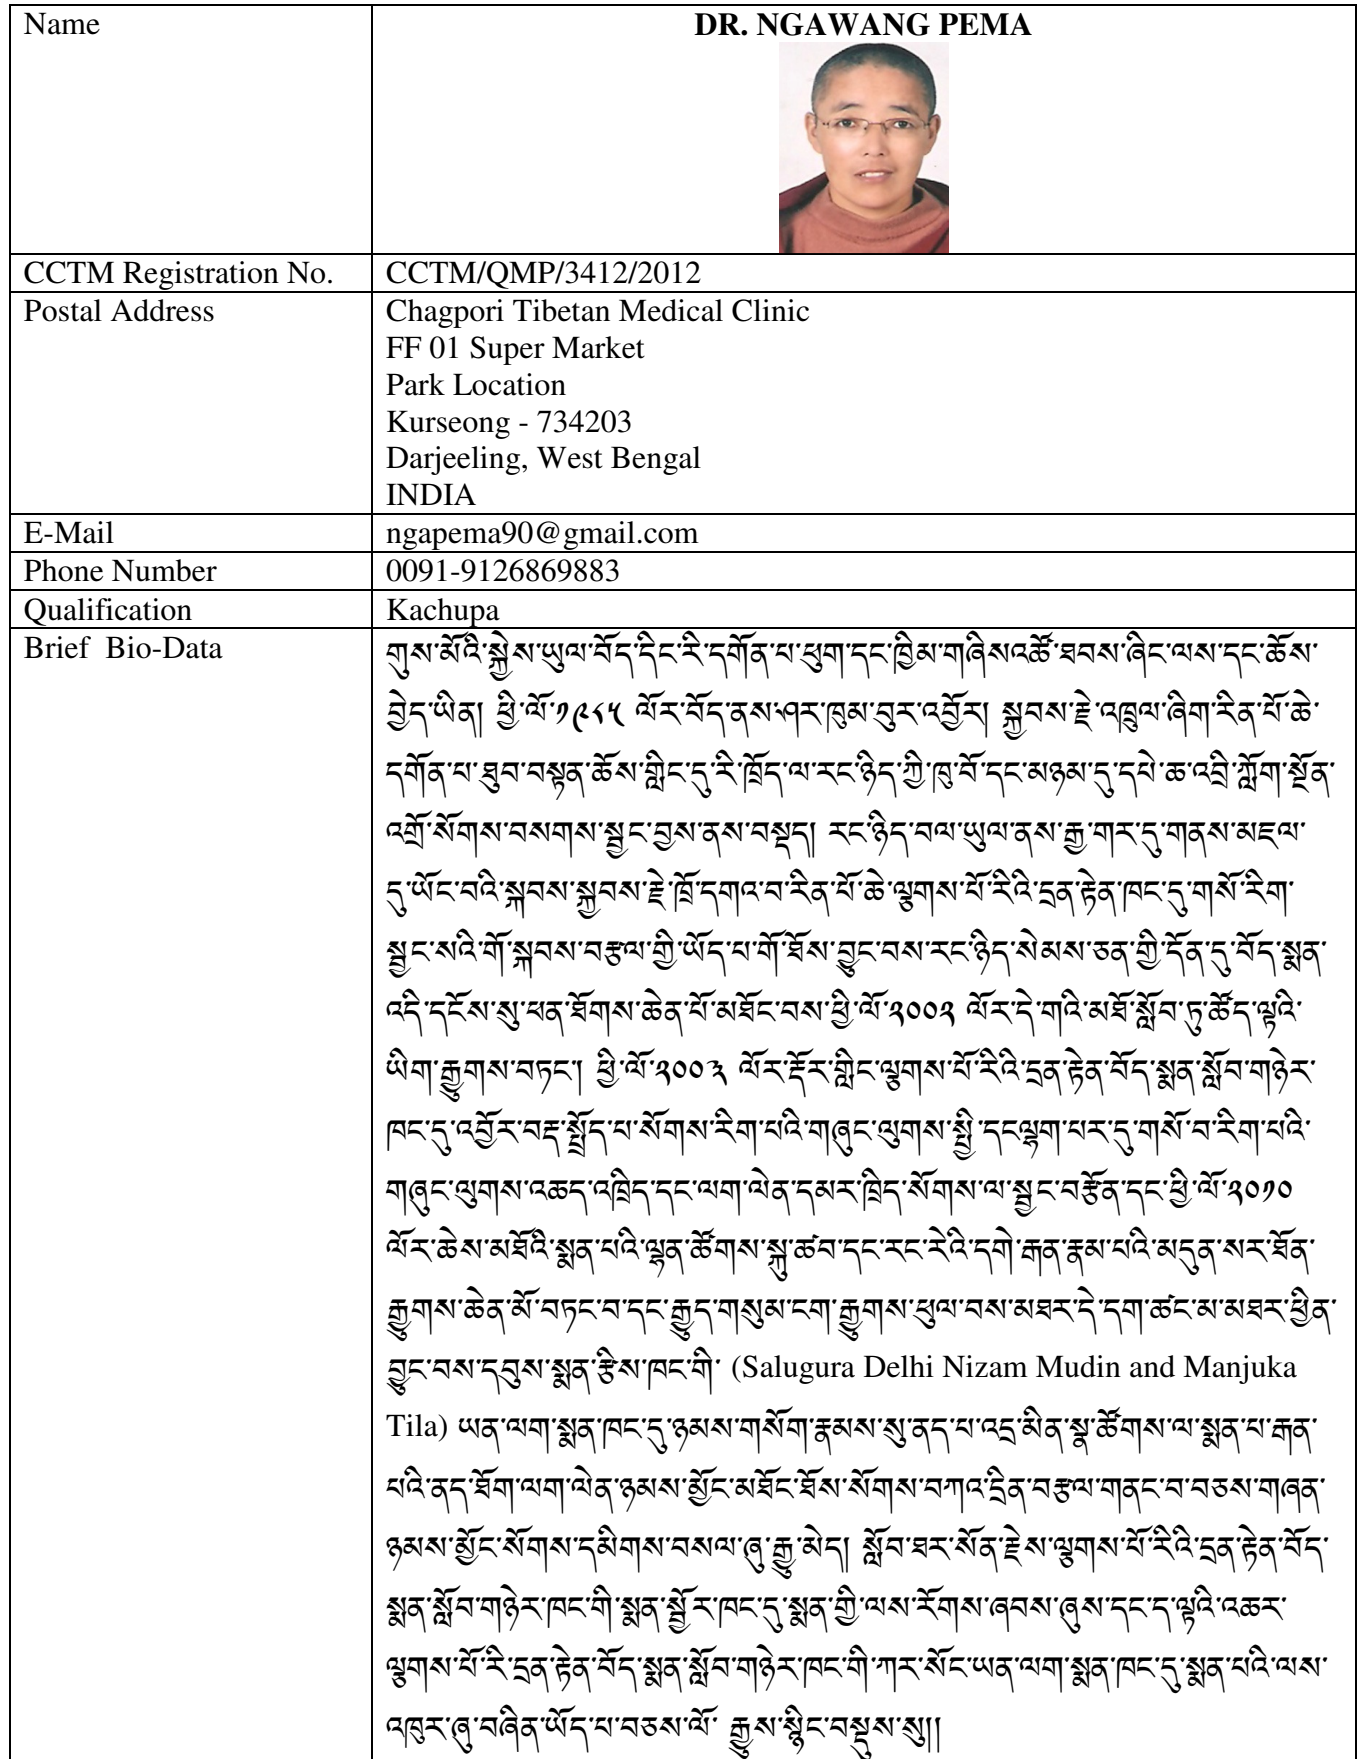 Name
DR. NGAWANG PEMA
CCTM Registration No.
CCTM/QMP/3412/2012
Postal Address
Chagpori Tibetan Medical Clinic
FF 01 Super Market
Park Location
Kurseong - 734203
Darjeeling, West Bengal
INDIA
E-Mail
ngapema90@gmail.com
Phone Number
0091-9126869883
Qualification
Kachupa
Brief Bio-Data
གུས་མོའི་སྐྱེས་ཡུལ་བོད་དིང་རི་དགོན་པ་ཕུག་དང་ཁྱིམ་གཞིས་འཚོ་ཐབས་ཞིང་ལས་དང་ཆོས་
བྱེད་ཡིན། ཕྱི་ལོ་༡༩༨༥ ལོར་བོད་ནས་ཤར་ཁུམ་བུར་འབྱོར། སྐྱབས་རྗེ་འཁྲུལ་ཞིག་རིན་པོ་ཆེ་
དགོན་པ་ཐུབ་བསྟན་ཆོས་གླིང་དུ་རི་ཁྲོད་ལ་རང་ཉིད་ཀྱི་ཁུ་བོ་དང་མཉམ་དུ་དཔེ་ཆ་འབྲི་ཀློག་སྔོན་
འགྲོ་སོགས་བསགས་སྦྱང་བྱས་ནས་བསྡད། རང་ཉིད་བལ་ཡུལ་ནས་རྒྱ་གར་དུ་གནས་མཇལ་
དུ་ཡོང་བའི་སྐབས་སྐྱབས་རྗེ་ཁྲོ་དགའ་བ་རིན་པོ་ཆེ་ལྕགས་པོ་རིའི་དྲན་རྟེན་ཁང་དུ་གསོ་རིག་
སྦྱང་སའི་གོ་སྐབས་བརྩལ་གྱི་ཡོད་པ་གོ་ཐོས་བྱུང་བས་རང་ཉིད་སེམས་ཅན་གྱི་དོན་དུ་བོད་སྨན་
འདི་དངོས་སུ་ཕན་ཐོགས་ཆེན་པོ་མཐོང་བས་ཕྱི་ལོ་༢༠༠༢ ལོར་དེ་གའི་མཐོ་སློབ་ཏུ་ཚོད་ལྟའི་
ཡིག་རྒྱུགས་བཏང་། ཕྱི་ལོ་༢༠༠༣ ལོར་རྡོར་གླིང་ལྕགས་པོ་རིའི་དྲན་རྟེན་བོད་སྨན་སློབ་གཉེར་
ཁང་དུ་འབྱོར་བརྡ་སྤྲོད་པ་སོགས་རིག་པའི་གཞུང་ལུགས་སྤྱི་དང་ལྷག་པར་དུ་གསོ་བ་རིག་པའི་
གཞུང་ལུགས་འཆད་འཁྲིད་དང་ལག་ལེན་དམར་ཁྲིད་སོགས་ལ་སྦྱང་བརྩོན་དང་ཕྱི་ལོ་༢༠༡༠
ལོར་ཆེས་མཐོའི་སྨན་པའི་ལྷན་ཚོགས་སྐུ་ཚབ་དང་རང་རེའི་དགེ་རྒན་རྣམ་པའི་མདུན་སར་ཐོན་
རྒྱུགས་ཆེན་མོ་བཏང་བ་དང་རྒྱུད་གསུམ་ངག་རྒྱུགས་ཕུལ་བས་མཐར་དེ་དག་ཚང་མ་མཐར་ཕྱིན་
བྱུང་བས་དབུས་སྨན་རྩིས་ཁང་གི་ (Salugura Delhi Nizam Mudin and Manjuka
Tila) ཡན་ལག་སྨན་ཁང་དུ་ཉམས་གསོག་རྣམས་སུ་ནད་པ་འདྲ་མིན་སྣ་ཚོགས་ལ་སྨན་པ་རྒན་
པའི་ནད་ཐོག་ལག་ལེན་ཉམས་མྱོང་མཐོང་ཐོས་སོགས་བཀའ་དྲིན་བརྩལ་གནང་བ་བཅས་གཞན་
ཉམས་མྱོང་སོགས་དམིགས་བསལ་ཞུ་རྒྱུ་མེད། སློབ་ཐར་སོན་རྗེས་ལྕགས་པོ་རིའི་དྲན་རྟེན་བོད་
སྨན་སློབ་གཉེར་ཁང་གི་སྨན་སྦྱོར་ཁང་དུ་སྨན་གྱི་ལས་རོགས་ཞབས་ཞུས་དང་ད་ལྟའི་འཆར་
ལྕགས་པོ་རི་དྲན་རྟེན་བོད་སྨན་སློབ་གཉེར་ཁང་གི་ཀར་སོང་ཡན་ལག་སྨན་ཁང་དུ་སྨན་པའི་ལས་
འཁུར་ཞུ་བཞིན་ཡོད་པ་བཅས་ལོ་ རྒྱུས་སྙིང་བསྡུས་སུ།།